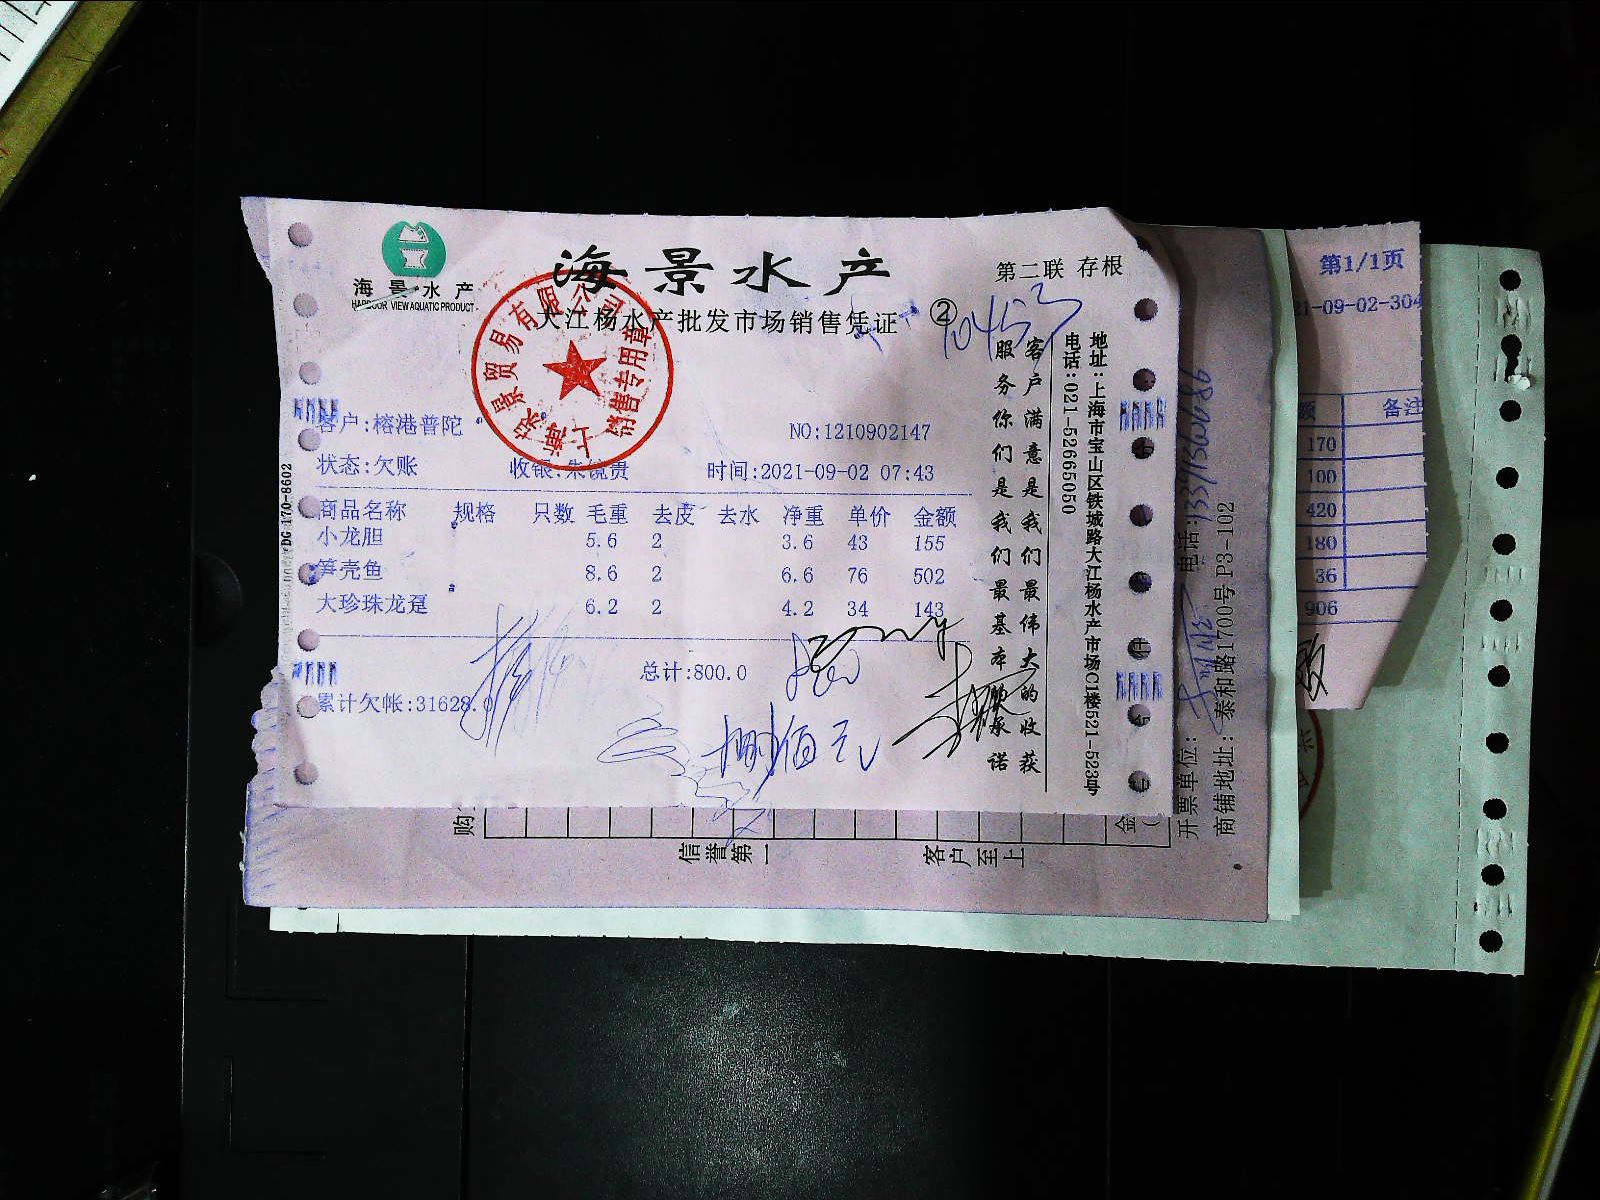 海景水产
HARBOUR VIEW AQUATIC PRODUCT
海景水产
第二联 存根
大江杨水产批发市场销售凭证 ②
10453
贸易有限公司
销售专用章
客户:榕港普陀
NO:1210902147
状态:欠账 收银:朱镜贵 时间:2021-09-02 07:43
商品名称 规格 只数 毛重 去皮 去水 净重 单价 金额
小龙胆 5.6 2 3.6 43 155
笋壳鱼 8.6 2 6.6 76 502
大珍珠龙趸 6.2 2 4.2 34 143
总计:800.0
累计欠帐:31628.0
捌佰元
客户满意是我们最伟大的收获
服务你们是我们最基本的承诺
地址:上海市宝山区铁城路大江杨水产市场C1楼521-523号
电话:021-52665050
DG 170-8602
第1/1页
21-09-02-304
额 备注
170
100
420
180
36
906
电话:
开票单位:
商铺地址:泰和路1700号P3-102
购
金
信誉第一 客户至上